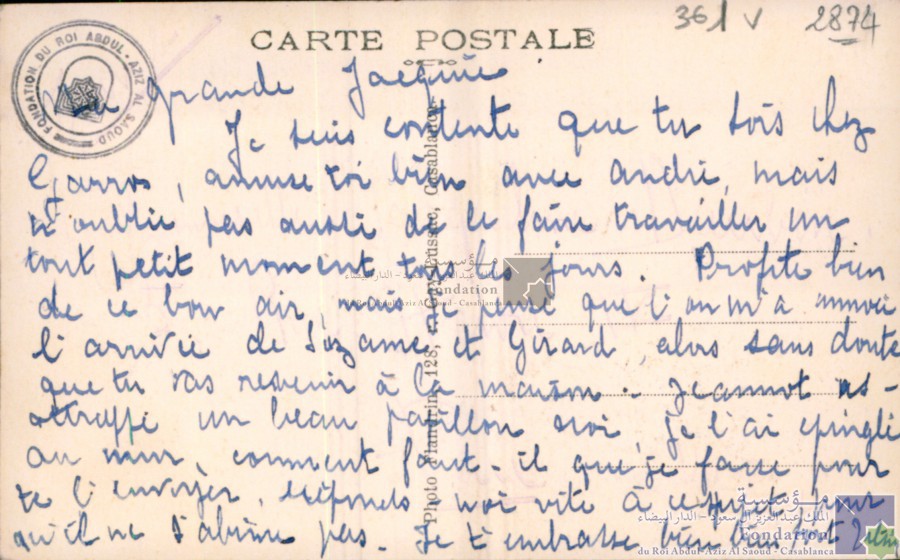 361 v 2874
CARTE POSTALE
FONDATION DU ROI ABDUL-AZIZ AL SAOUD
Ma grande Jacquie
Je suis contente que tu sois chez
Garros, amuse toi bien avec andré, mais
n'oublie pas aussi de le faire travailler un
tout petit moment tous les jours. Profite bien
de ce bon air, mais je pense que l'on m'a annoncé
l'arrivée de Suzanne et Gérard, alors sans doute
que tu vas revenir à la maison. Jeannot as-
attrappé un beau papillon noir, je l'ai épinglé
au mur, comment faut-il que je fasse pour
te l'envoyer, réponds moi vite à ce sujet pour
qu'il ne s'abîme pas. Je t'embrasse bien bien fort
Photo Flandrin, 128, Casablanca.
مؤسسة
الملك عبد العزيز آل سعود - الدار البيضاء
Fondation
du Roi Abdul-Aziz Al Saoud - Casablanca
مؤسسة
الملك عبد العزيز آل سعود - الدار البيضاء
Fondation
du Roi Abdul-Aziz Al Saoud - Casablanca